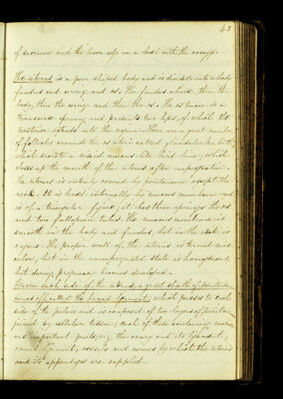 43
of and the lower lip on a level with the
The uterus is a pear shaped body and is divided into a body
fundus and cervix and os. The fundus above, then the
body, then the cervix and then the os. The os tincae is a
transverse opening and presents two lips, of which the
posterior extends into the vagina. There are a great number
of follicles around the os uteri called glandulae
which secrete a viscid mucus like bird lime, which
closes up the mouth of the uterus after impregnation.
The uterus is entirely covered by peritoneum except the
neck. It is lined internally by mucous membrane and
is of a triangular figure; it has three openings the os
and two fallopian tubes. The mucous membrane is
smooth in the body and fundus, but in the neck is
rugous. The proper wall of the uterus is
but in the unimpregnated state is
but during pregnancy becomes developed.
From each side of the uterus, a great sheath of peritoneum
comes off called the broad ligament, which passes to each
side of the pelvis and is composed of two layers of peritoneum
joined by cellular tissue; each of these containing
important parts, viz, the ovary and its ligament,
round ligament, vessels and nerves by which the uterus
and its appendages are supplied.